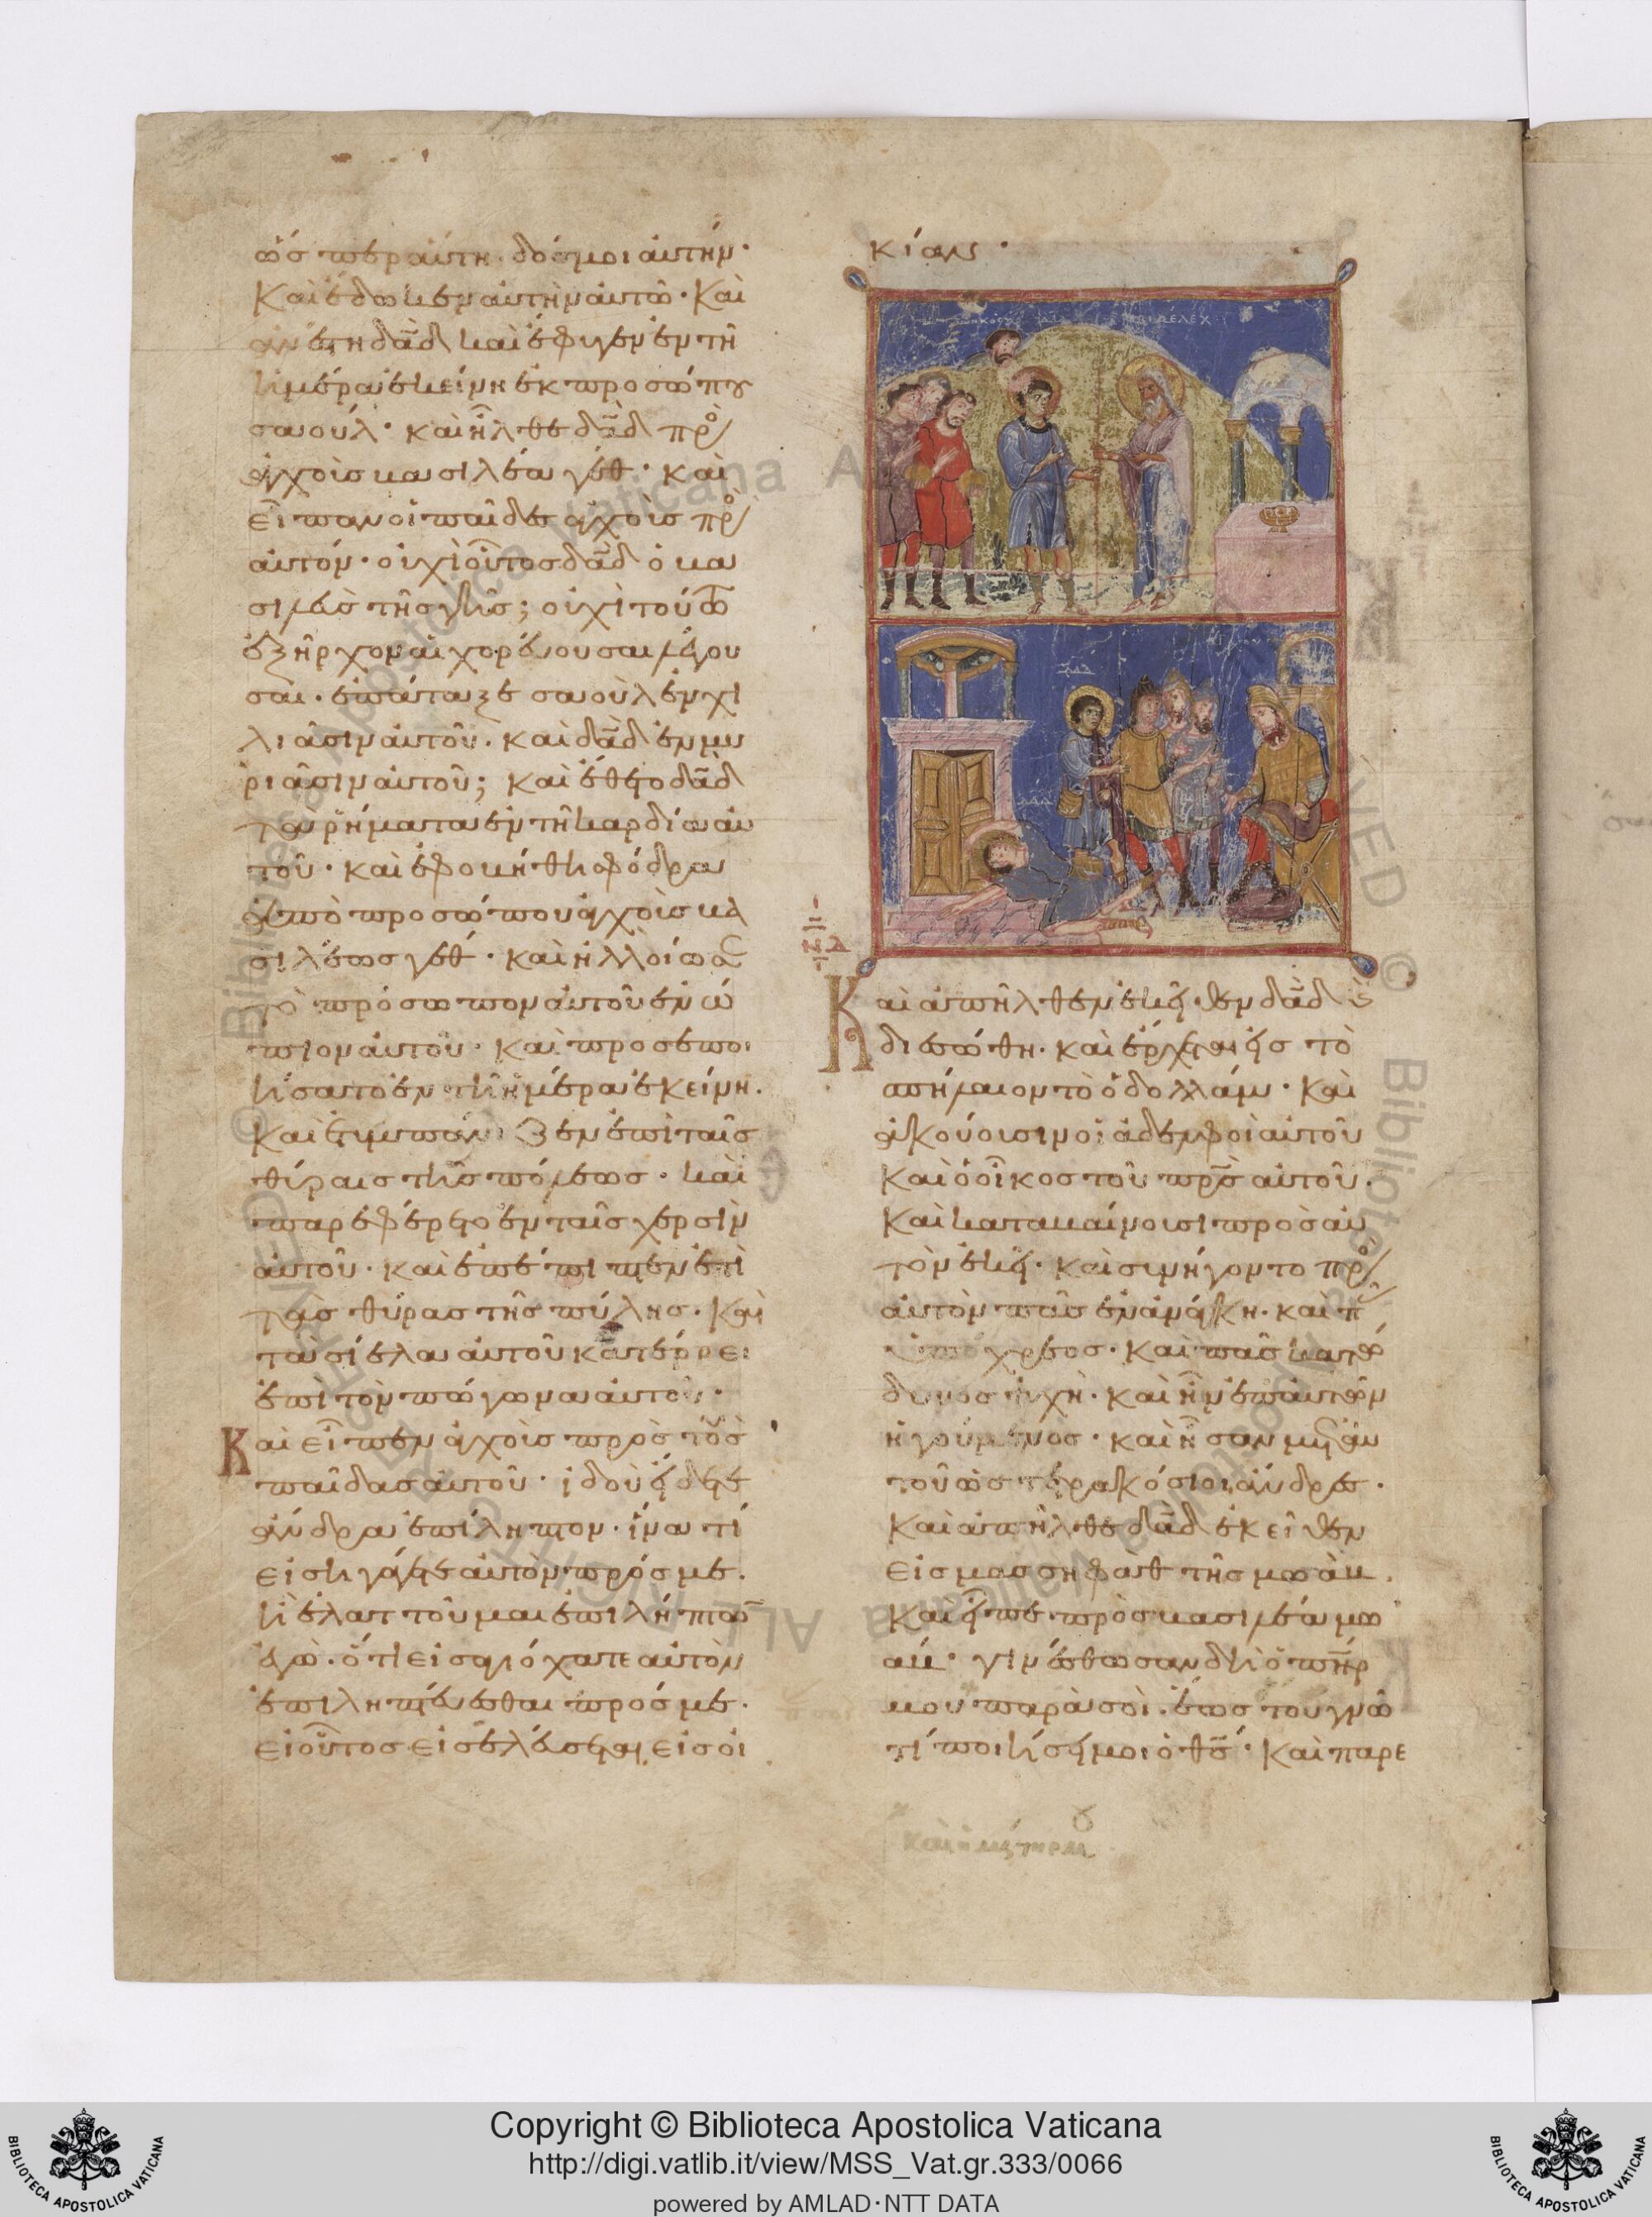 ὡσπερ αὐτη· δός μοι αὐτήν·
Καὶ ἔδωκεν αὐτὴν αὐτῶ· Καὶ
ἀνέστη δᾱδ καὶ ἔφυγεν ἐν τῆ
ἡμέρα ἐκείνη ἐκ προσώπου
σαούλ· καὶ ἦλθε δᾱδ πρὸς
ἀγχοὺς βασιλέα γέθ· καὶ
εἶπαν οἱ παῖδες ἀγχοὺς πρὸς
αὐτόν· οὐχὶ οὗτος δᾱδ ὁ βα
σιλεὺς τῆς γῆς; οὐχὶ τούτω
ἐξῆρχον αἱ χορεύουσαι λέγου
σαι· ἐπάταξε σαοὺλ ἐν χι
λιάσιν αὐτοῦ· καὶ δᾱδ ἐν μυ
ριάσιν αὐτοῦ; καὶ ἔθετο δᾱδ
τὰ ῥήματα ἐν τῆ καρδία αὐ
τοῦ· καὶ ἐφοβήθη σφόδρα
ἀπὸ προσώπου ἀγχοὺς βα
σιλέως γέθ· καὶ ἠλλοίωσε
τὸ πρόσωπον αὐτοῦ ἐνώ
πιον αὐτοῦ· καὶ προσεποι
ήσατο ἐν τῆ ἡμέρα ἐκείνη·
καὶ ἐτυμπάνιζεν ἐπὶ ταῖς
θύραις τῆς πόλεως· καὶ
παρεφέρετο ἐν ταῖς χερσὶν
αὐτοῦ· καὶ ἐπέπιπτεν ἐπὶ
τὰς θύρας τῆς πύλης· Καὶ
τὰ σίελα αὐτοῦ κατέρρει
ἐπὶ τὸν πώγωνα αὐτοῦ·
Καὶ εἶπεν ἀγχοὺς πρὸς τοὺς
παῖδας αὐτοῦ· ἰδοὺ εἴδετε
ἄνδρα ἐπίληπτον· ἵνα τί
εἰσηγάγετε αὐτὸν πρός με·
ἢ ἐλαττοῦμαι ἐπιλήπτων
ἐγώ· ὅτι εἰσαγιόχατε αὐτὸν
ἐπιληπτεύεσθαι πρός με·
εἰ οὗτος εἰσελεύσεται εἰς οἰ
κίαν·
Καὶ ἀπῆλθεν ἐκεῖθεν δᾱδ καὶ
διεσώθη· καὶ ἔρχεται εἰς τὸ
σπήλαιον τὸ ὀδολλάμ· Καὶ
ἀκούουσιν οἱ ἀδελφοὶ αὐτοῦ
Καὶ ὁ οἶκος τοῦ πρ̄ς αὐτοῦ·
Καὶ καταβαίνουσι πρὸς αὐ
τὸν ἐκεῖ· Καὶ συνήγοντο πρὸς
αὐτὸν πᾶς ἐν ἀνάγκη· καὶ πᾶς
ὑπόχρεος· Καὶ πᾶς κατώ
δυνος ψυχὴ· καὶ ἦν ἐπ αὐτῶν
ἡγούμενος· καὶ ἦσαν μετ αὐ
τοῦ ὡς τετρακόσιοι ἄνδρες·
Καὶ ἀπῆλθε δᾱδ ἐκεῖθεν
εἰς μασσηφὰθ τῆς μωὰβ·
Καὶ εἶπε πρὸς βασιλέα μω
άβ· γινέσθωσαν δὴ ὁ πηρ
μου παρὰ σοὶ· ἕως του γνῶ
τί ποιήσει μοι ὁ θς̄· Καὶ παρε
καὶ ἡ μήτηρ μου
Copyright © Biblioteca Apostolica Vaticana
http://digi.vatlib.it/view/MSS_Vat.gr.333/0066
powered by AMLAD·NTT DATA
BIBLIOTECA APOSTOLICA VATICANA
BIBLIOTECA APOSTOLICA VATICANA